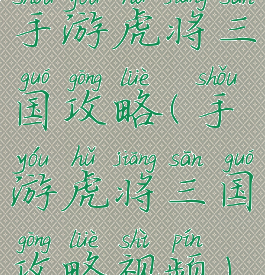 shǒu yóu hǔ jiāng sān
手游虎将三
guó gōng lüè shǒu
国攻略(手
yóu hǔ jiāng sān guó
游虎将三国
gōng lüè shì pín
攻略视频)